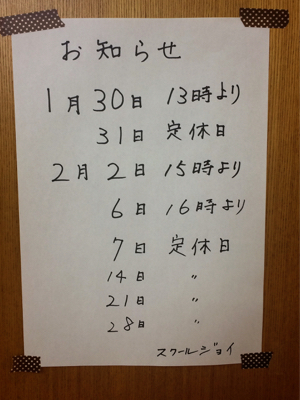 お知らせ
1月30日 13時より
31日 定休日
2月2日 15時より
6日 16時より
7日 定休日
14日 〃
21日 〃
28日 〃
スクールジョイ